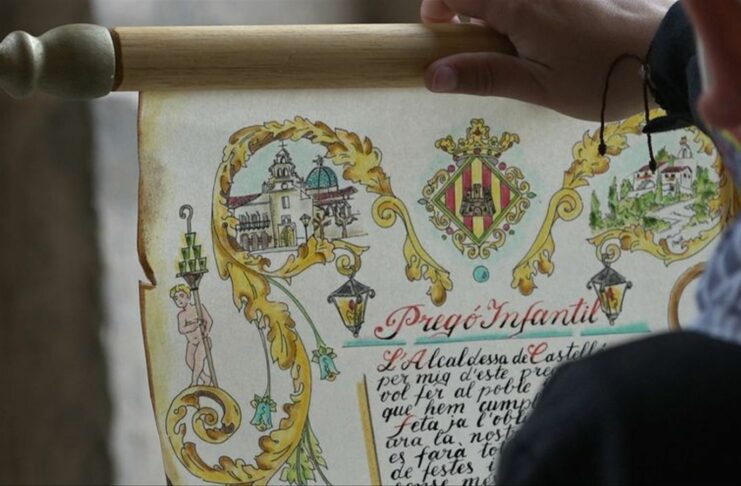 Pregó Infantil
L'Alcaldessa de Castell
per mig d'este preg
vol fer al poble
que hem cump
feta ja l'obl
ara la nost
es farà to
de festes i
sense me